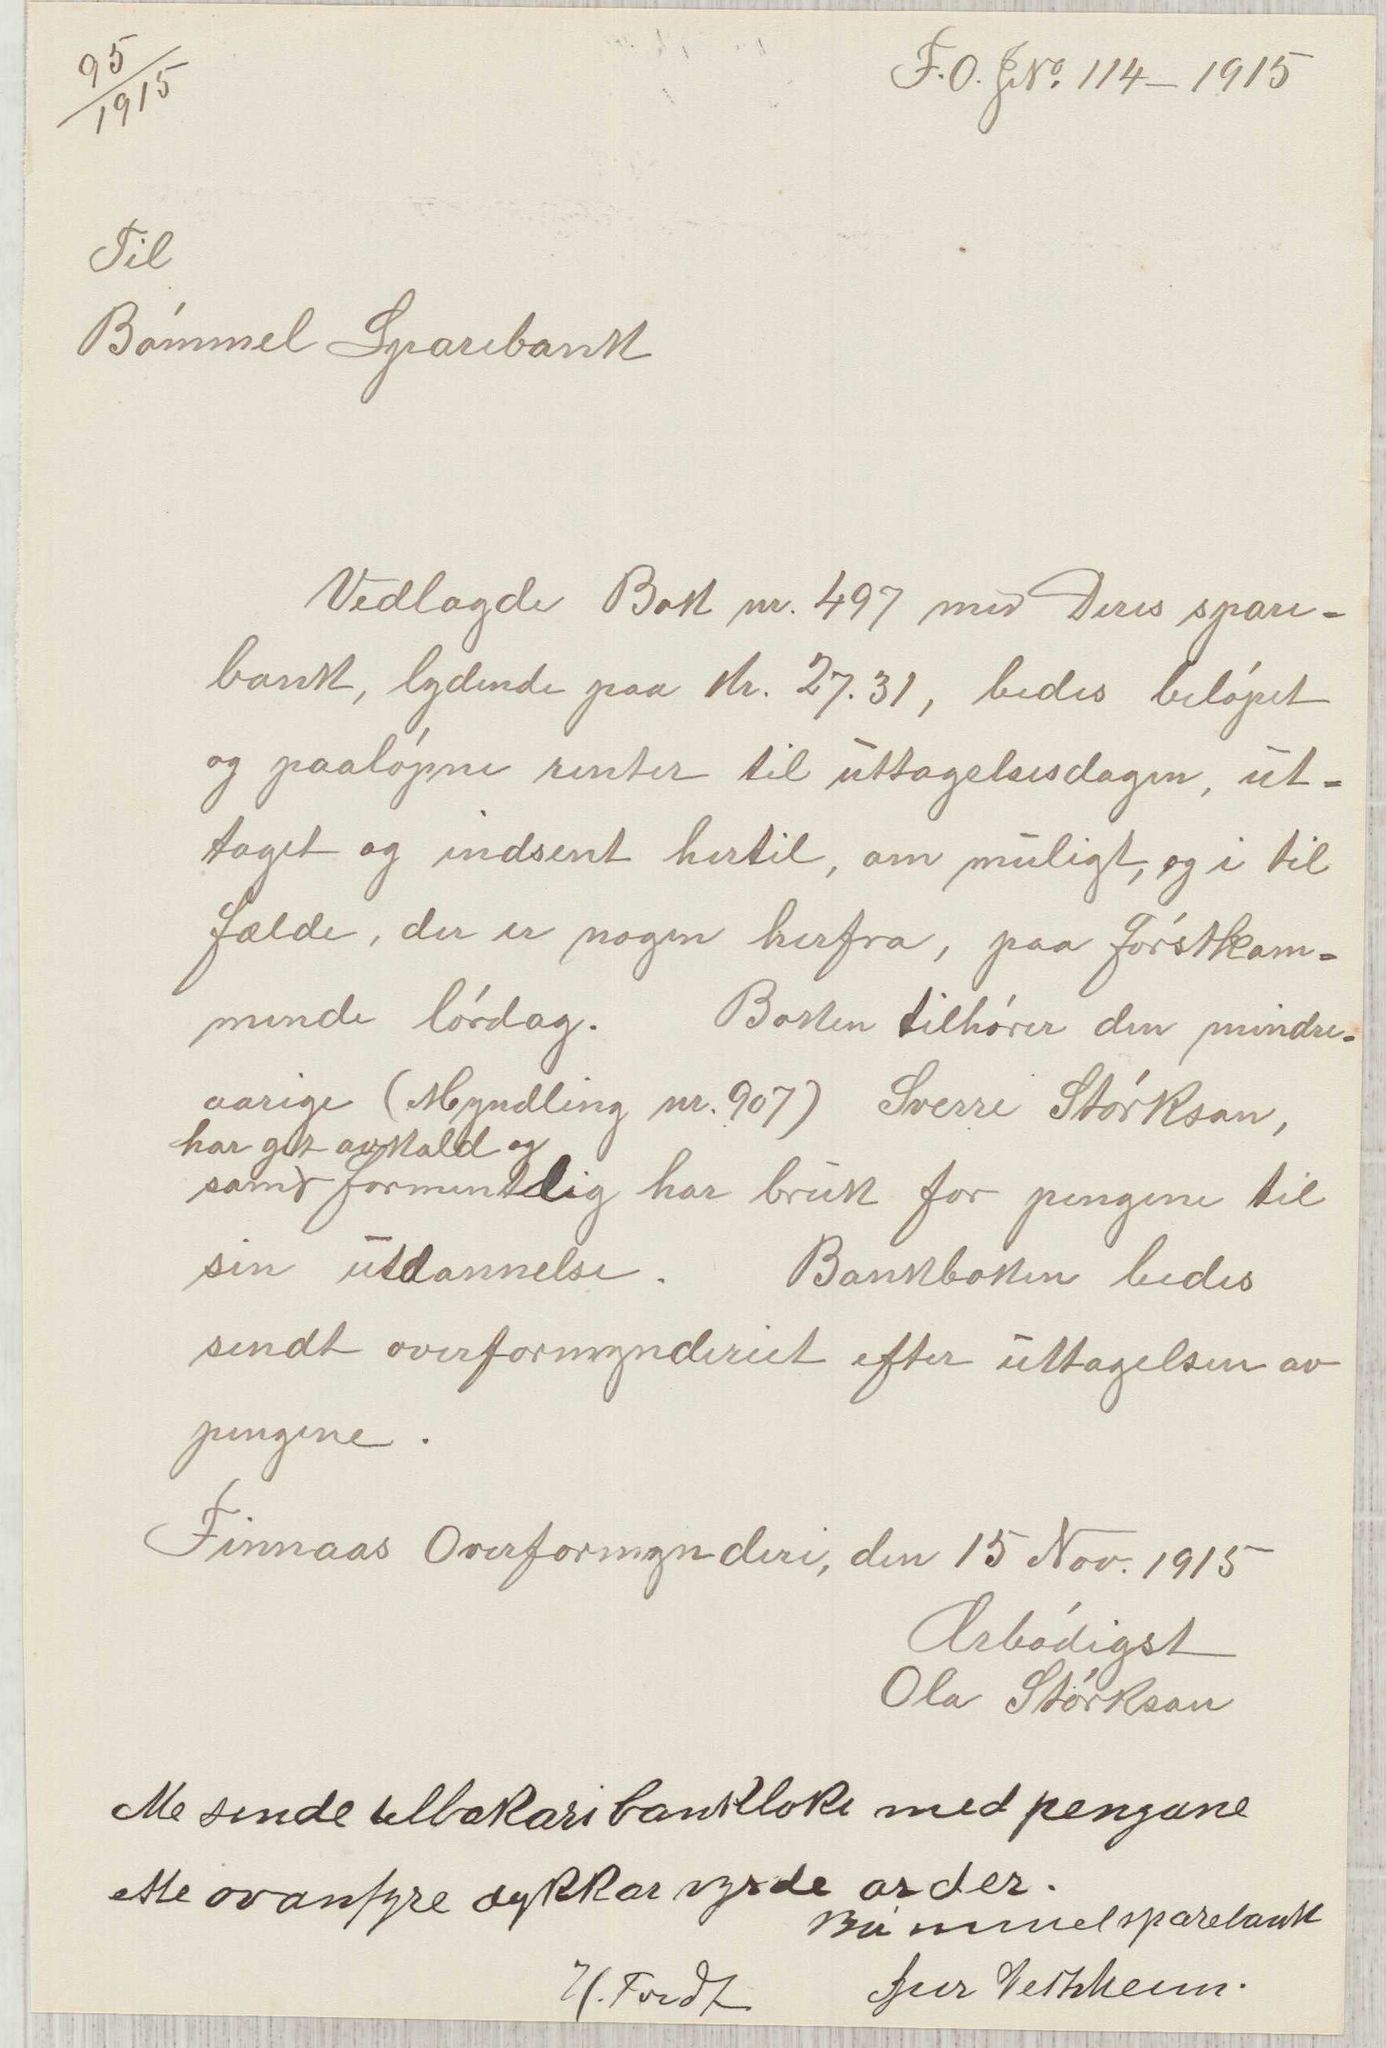 95
1915
F.O. JNo. 114 – 1915
Til
Bómmel Sparebank
Vedlagde Bok nr. 497 med Deres spare-
bank, lydende paa kr. 27.31, bedes belópet
og paalópne renter til uttagelsesdagen, ut-
taget og indsent hertil, om muligt, og i til
fælde, der er nogen herfra, paa fórstkom-
mende lórdag. Boken tilhórer den mindre-
aarige (Myndling nr. 907) Sverre Stórkson,
har git avkald og
som formentlig har bruk for pengene til
sin utdannelse. Bankboken bedes
sendt overformynderiet efter uttagelsen av
pengene.
Finnaas Overformynderi, den 15 Nov. 1915
Ærbódigst
Ola Stórkson
Me sende tilbakars bankboki med pengane
etle ovanfyre dykkar vyrde order.
Bümmel sparebank
7/